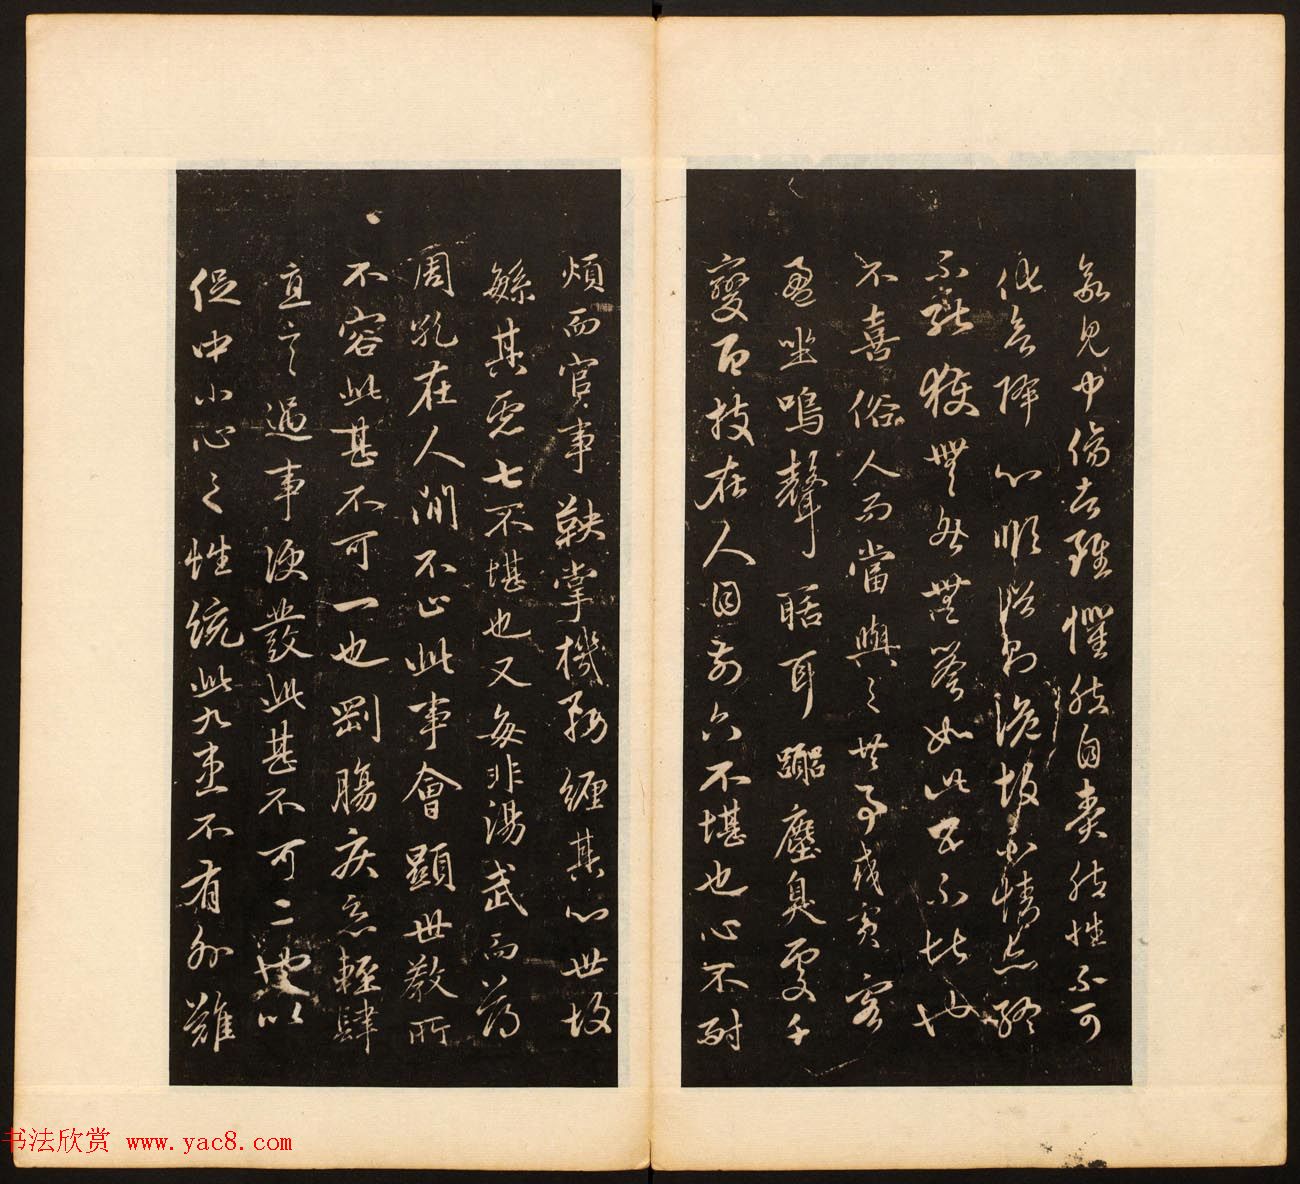 欲見中傷者雖懼然自責然性不可
化欲降心順俗則詭故不情亦終
不能獲無咎無譽如此五不堪也
不喜俗人而當與之共事或賓客
盈坐鳴聲聒耳囂塵臭處千
變百技在人目前六不堪也心不耐
煩而官事鞅掌機務纏其心世故
繁其慮七不堪也又每非湯武而薄
周孔在人間不止此事會顯世教所
不容此甚不可一也剛腸疾惡輕肆
直言遇事便發此甚不可二也以
促中小心之性統此九患不有外難
书法欣赏 www.yac8.com